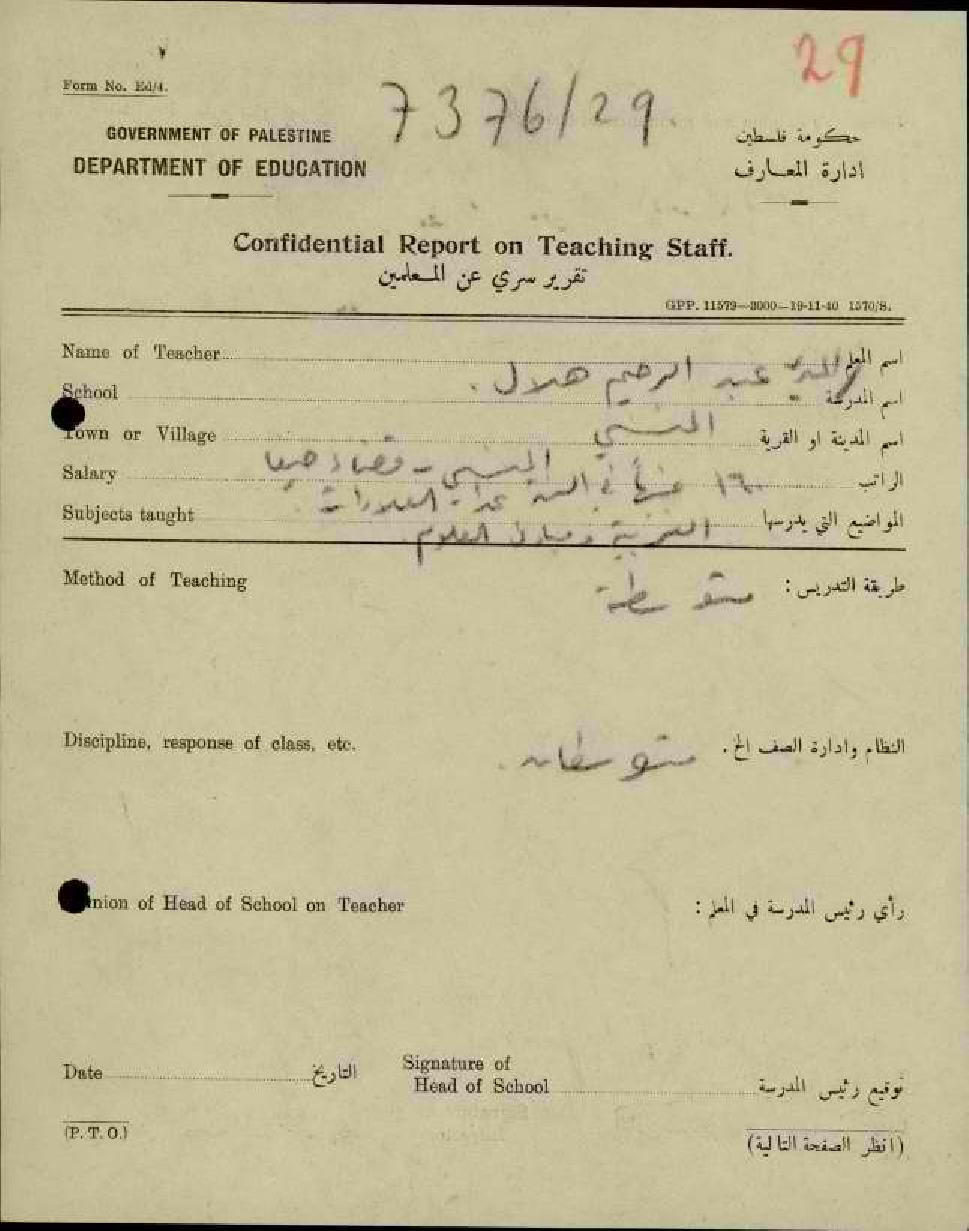 29
Form No. Ed/4.
7376/29.
GOVERNMENT OF PALESTINE
حكومة فلسطين
DEPARTMENT OF EDUCATION
ادارة المعارف
Confidential Report on Teaching Staff.
تقرير سري عن المعلمين
GPP. 11579—3000—19-11-40 1570/S.
Name of Teacher اسم المعلم
عبد الرحيم هلال .
School اسم المدرسة
المنسي
Town or Village اسم المدينة او القرية
المنسي - قضاء حيفا
Salary الراتب
١٦٠ في السنة عدا العلاوات .
Subjects taught المواضيع التي يدرسها
العربية ومبادئ العلوم
Method of Teaching طريقة التدريس :
متوسطة
Discipline, response of class, etc. النظام وادارة الصف الخ .
متوسطان .
inion of Head of School on Teacher رأي رئيس المدرسة في المعلم :
Date التاريخ
Signature of
Head of School توقيع رئيس المدرسة
(P. T. O.)
(انظر الصفحة التالية)